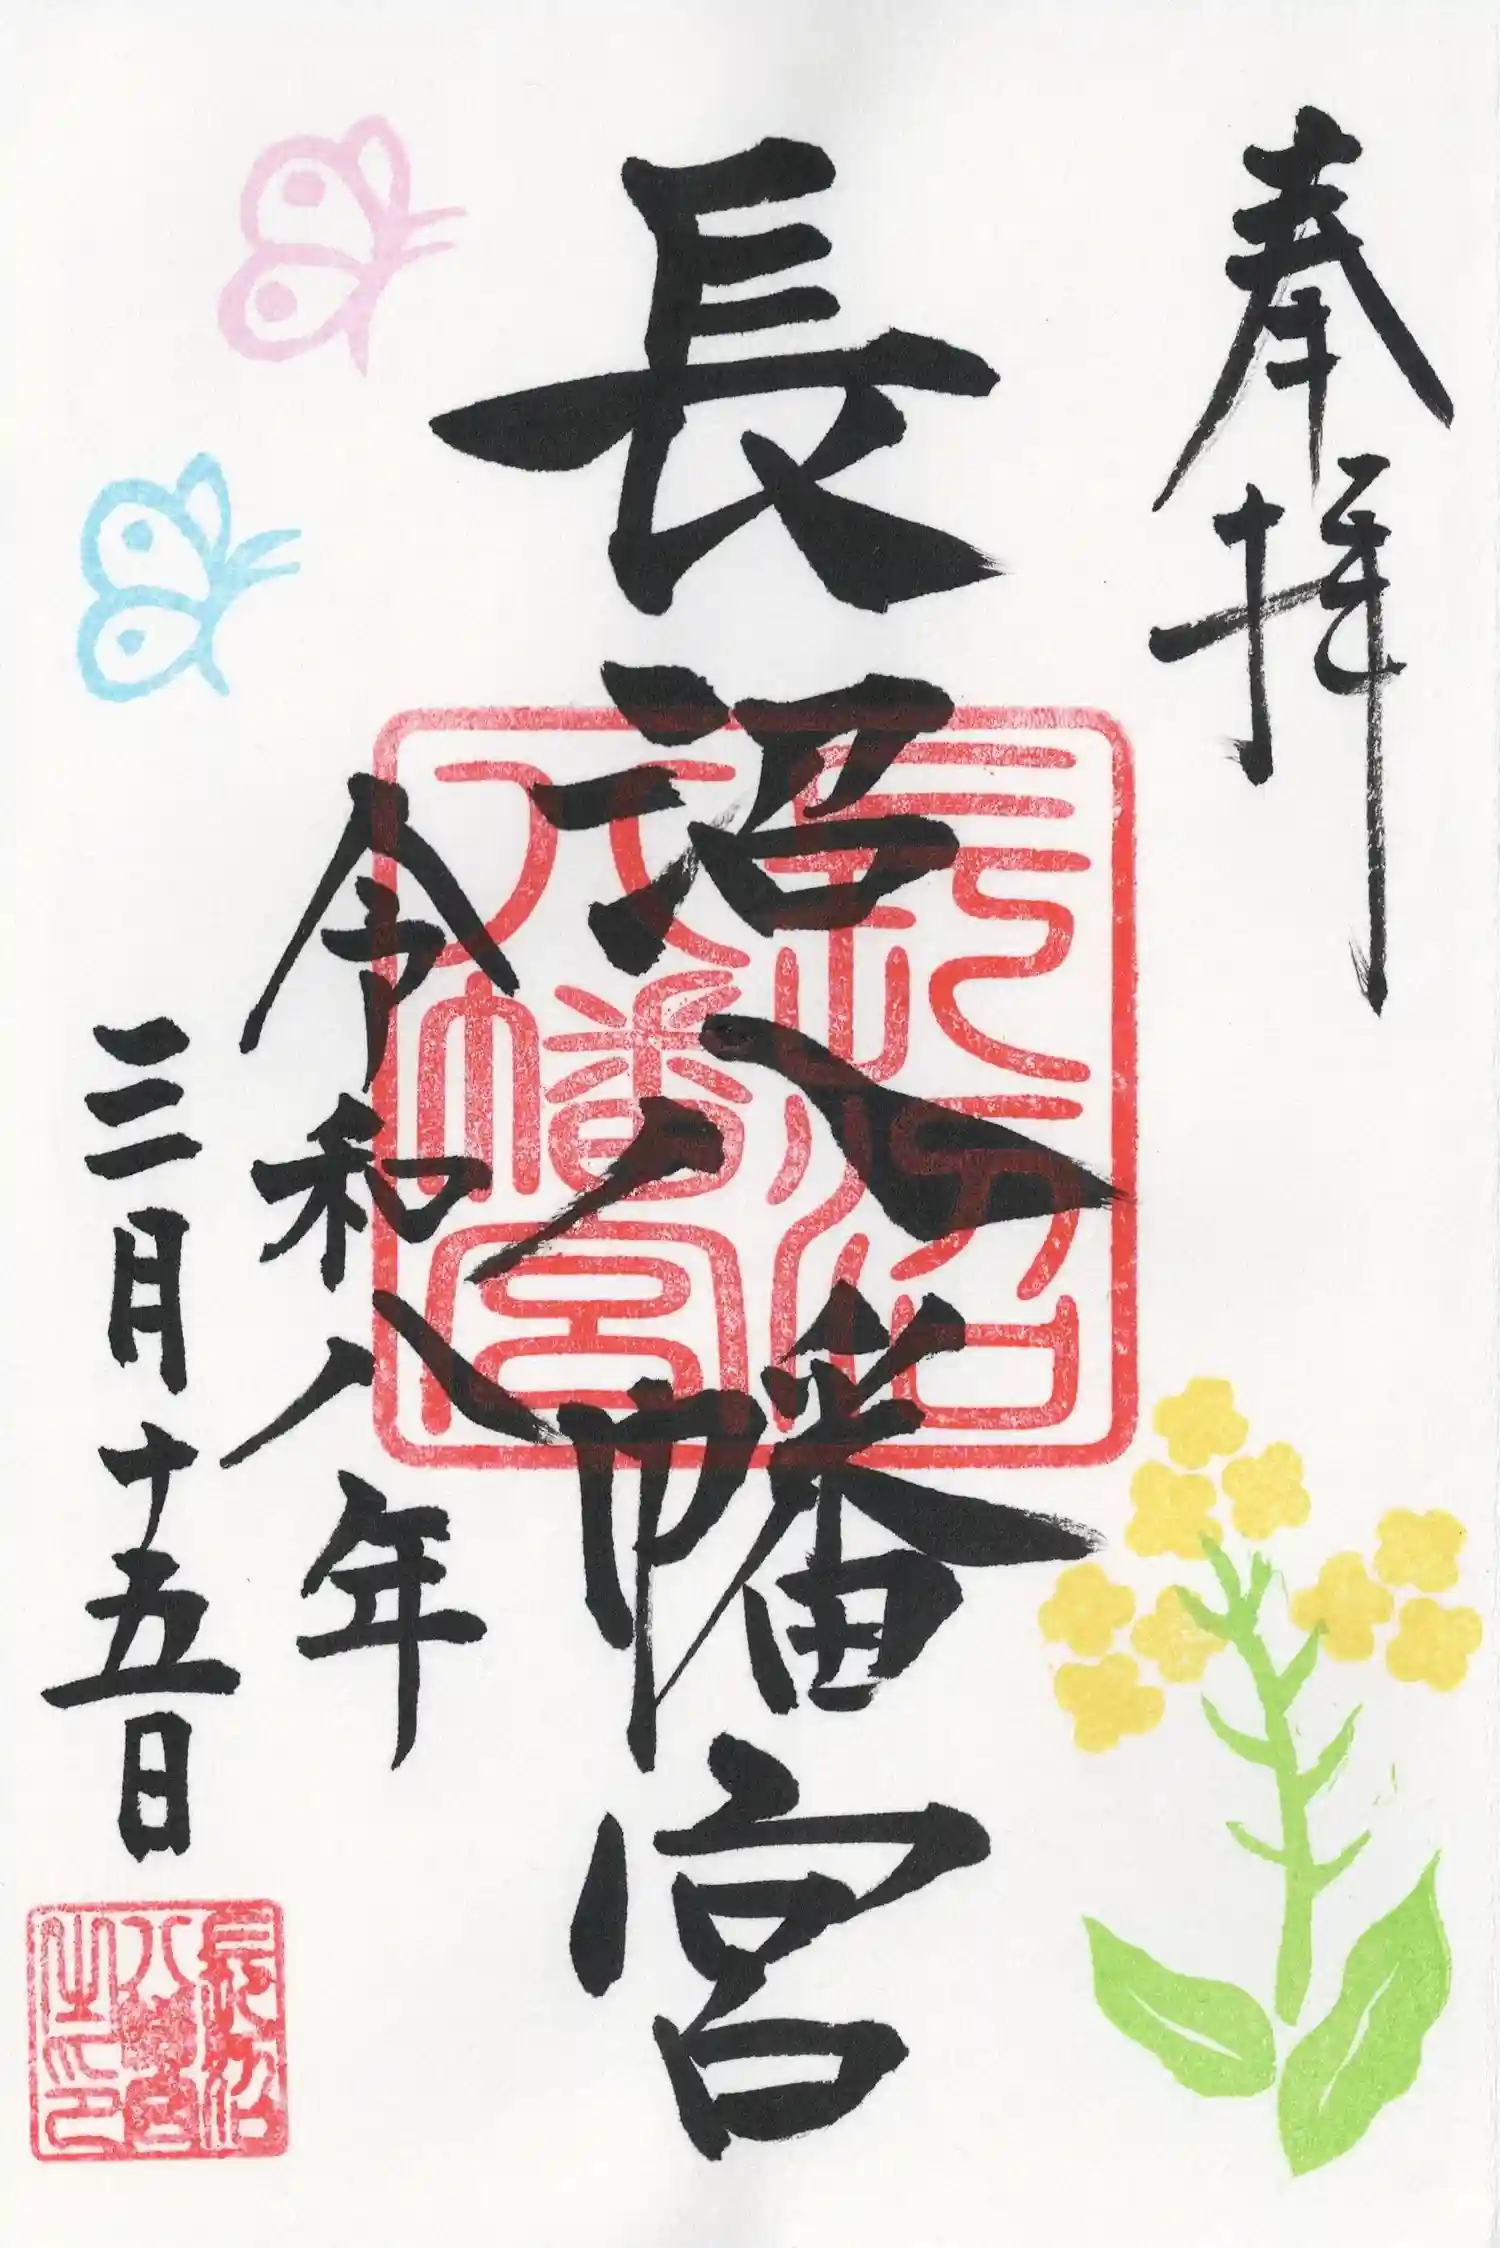 奉拝
長沼八幡宮
長沼
八幡宮
令和八年
三月十五日
長沼
八幡宮
之印